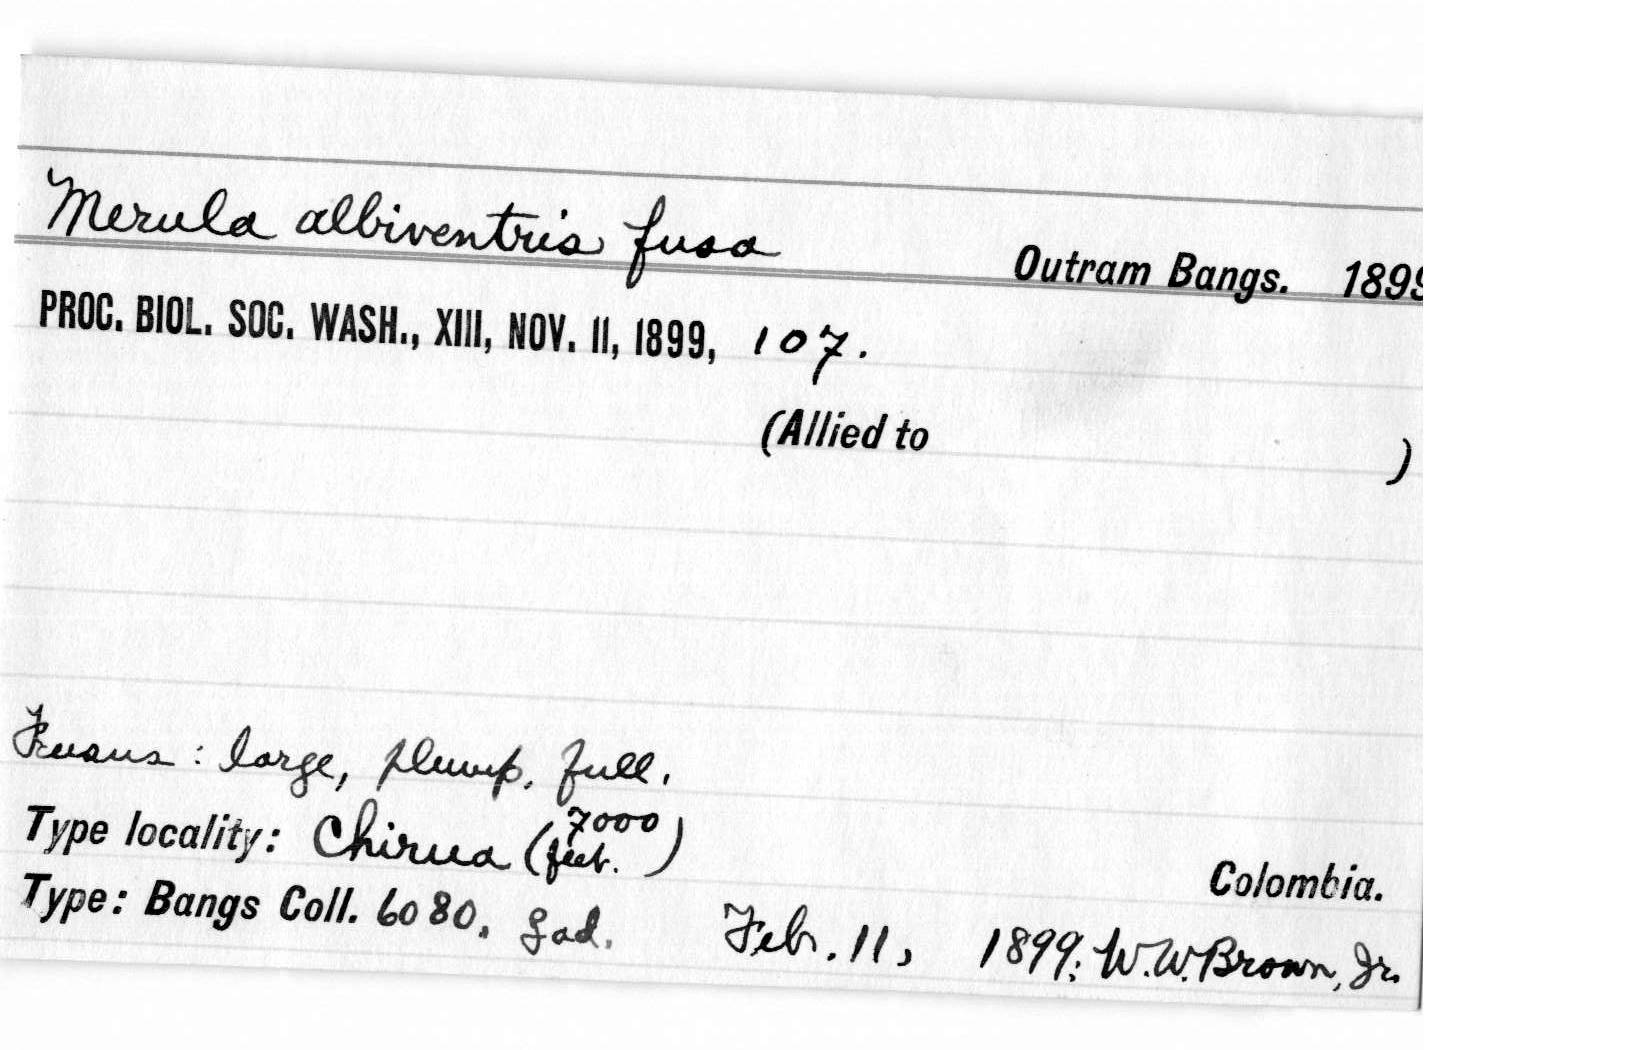 Merula albiventris fusa
Outram Bangs. 1899
PROC. BIOL. SOC. WASH., XIII, NOV. 11, 1899, 107.
(Allied to )
: large, plump, full.
Type locality: Chirua (7000 feet.) Colombia.
Type: Bangs Coll. 6080, ad. Feb. 11, 1899; W.W. Brown, Jr.